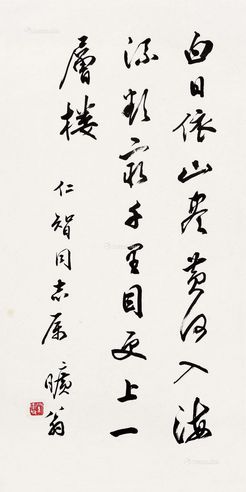 白日依山尽黄河入海
流欲穷千里目更上一
层楼
仁智同志属 旷翁